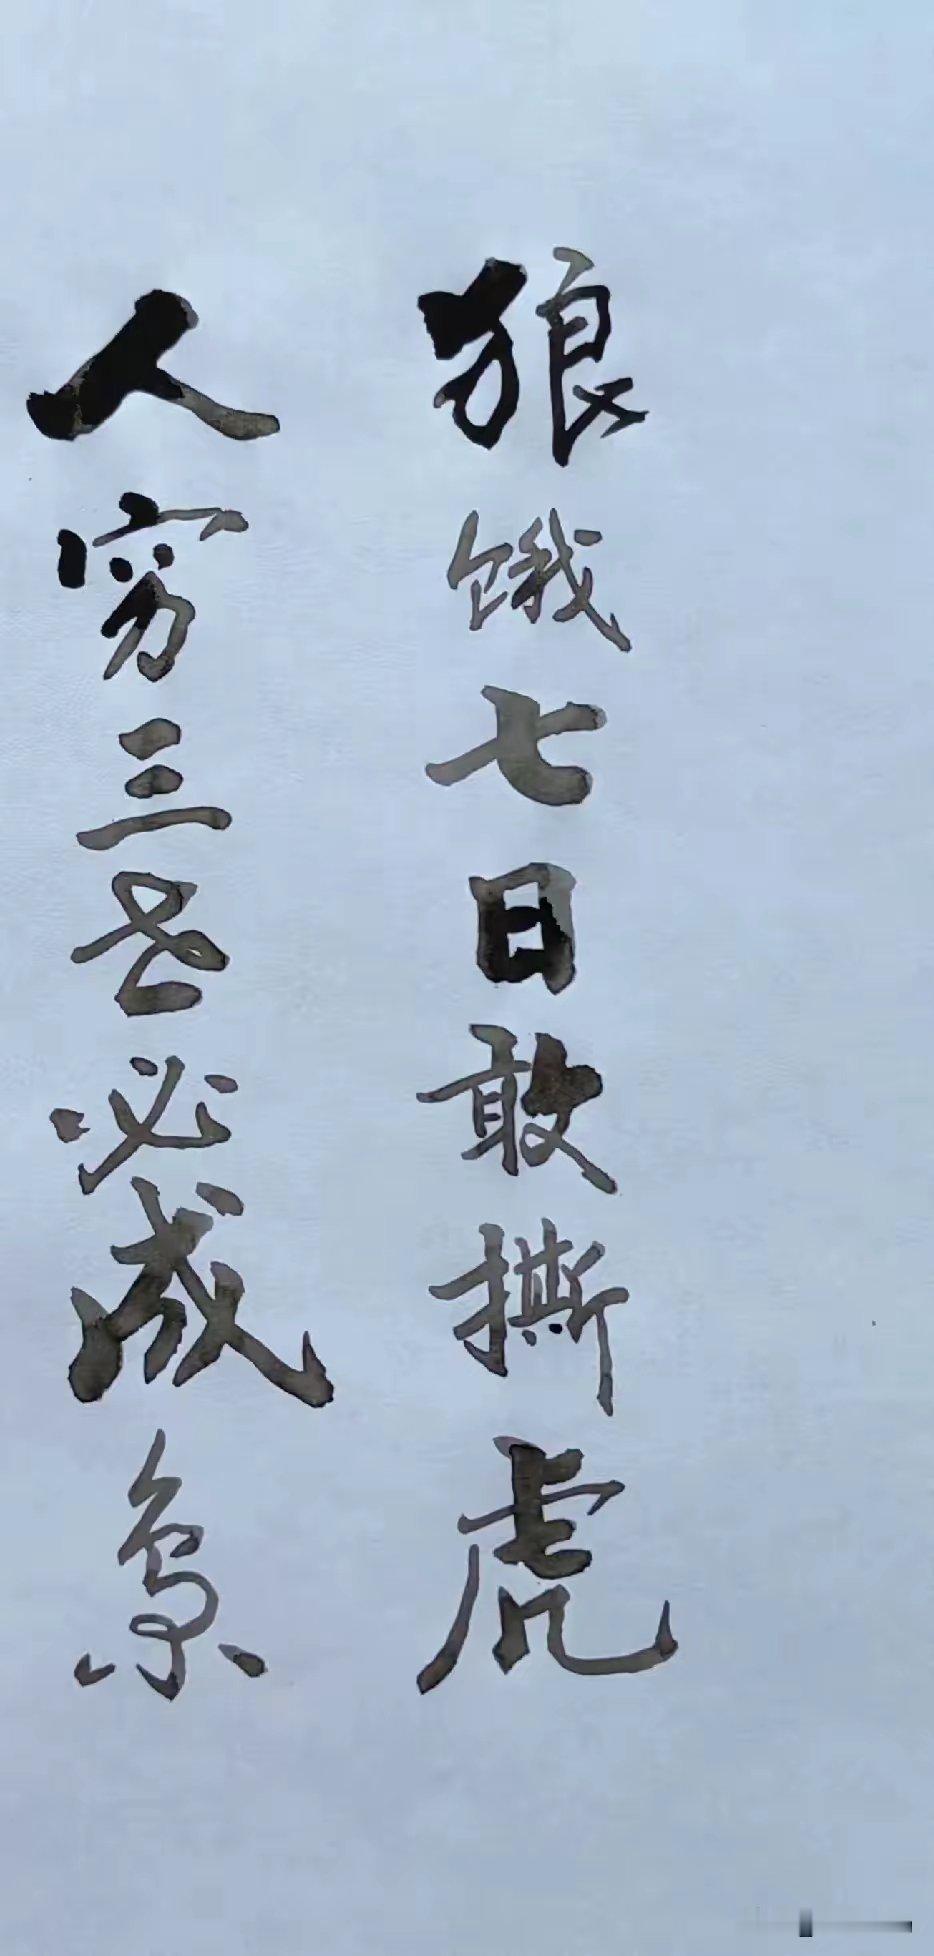 狼饿七日敢撕虎
人穷三世必成枭